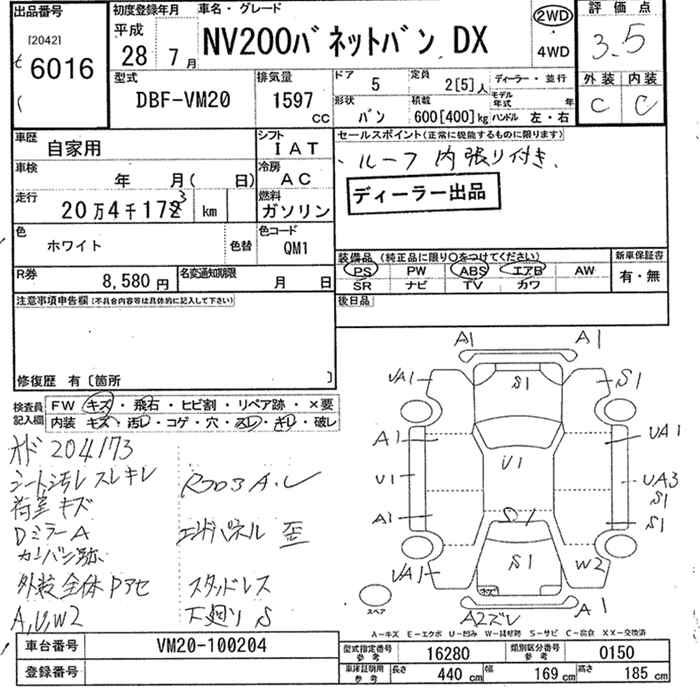 出品番号 初度登録年月 車名・グレード 2WD 評価点
[2042] 平成 NV200バネットバン DX 3.5
6016 28年 7月 4WD 外装 内装
型式 排気量 ドア 5 定員 2[5]人 ディーラー・並行 C C
DBF-VM20 1597cc 形状 バン 積載 600[400]kg モデル年式 年 ハンドル 左・右
車歴 自家用 シフト IAT セールスポイント(正常に機能するものに限ります)
車検 年 月( 日) 冷房 AC ・ルーフ内張り付き、
走行 20万4千173km 燃料 ガソリン ディーラー出品
色 ホワイト 色替 色コード QM1 装備品(純正品に限り○をつけてください) 新車保証書
R券 8,580円 名変通知期限 月 日 PS PW ABS エアB AW 有・無
SR ナビ TV カワ
注意事項申告欄(不具合内容等は具体的に記入して下さい) 後日品
修復歴 有〔箇所 〕
検査員記入欄 FW キズ・飛石・ヒビ割・リペア跡・×要
内装 キズ・汚レ・コゲ・穴・スレ・キレ・破レ
オド 204173
シート汚レ スレキレ
荷室キズ
DミラーA
カンバン跡
外装全体Pアセ
A,U,W2
エンドパネル 歪
スタッドレス
下廻り S
A1 A1
UA1 S1 S1
A1 UA1
U1 U1 UA3
S1
A1 S1
S1
UA1 W2
キズ
スペア A2ズレ A1
A-キズ E-エクボ U-凹み W-補修跡 S-サビ C-腐食 XX-交換済
車台番号 VM20-100204 型式指定番号参考 16280 類別区分番号参考 0150
登録番号 車庫証明用参考 長さ 440cm 幅 169cm 高さ 185cm